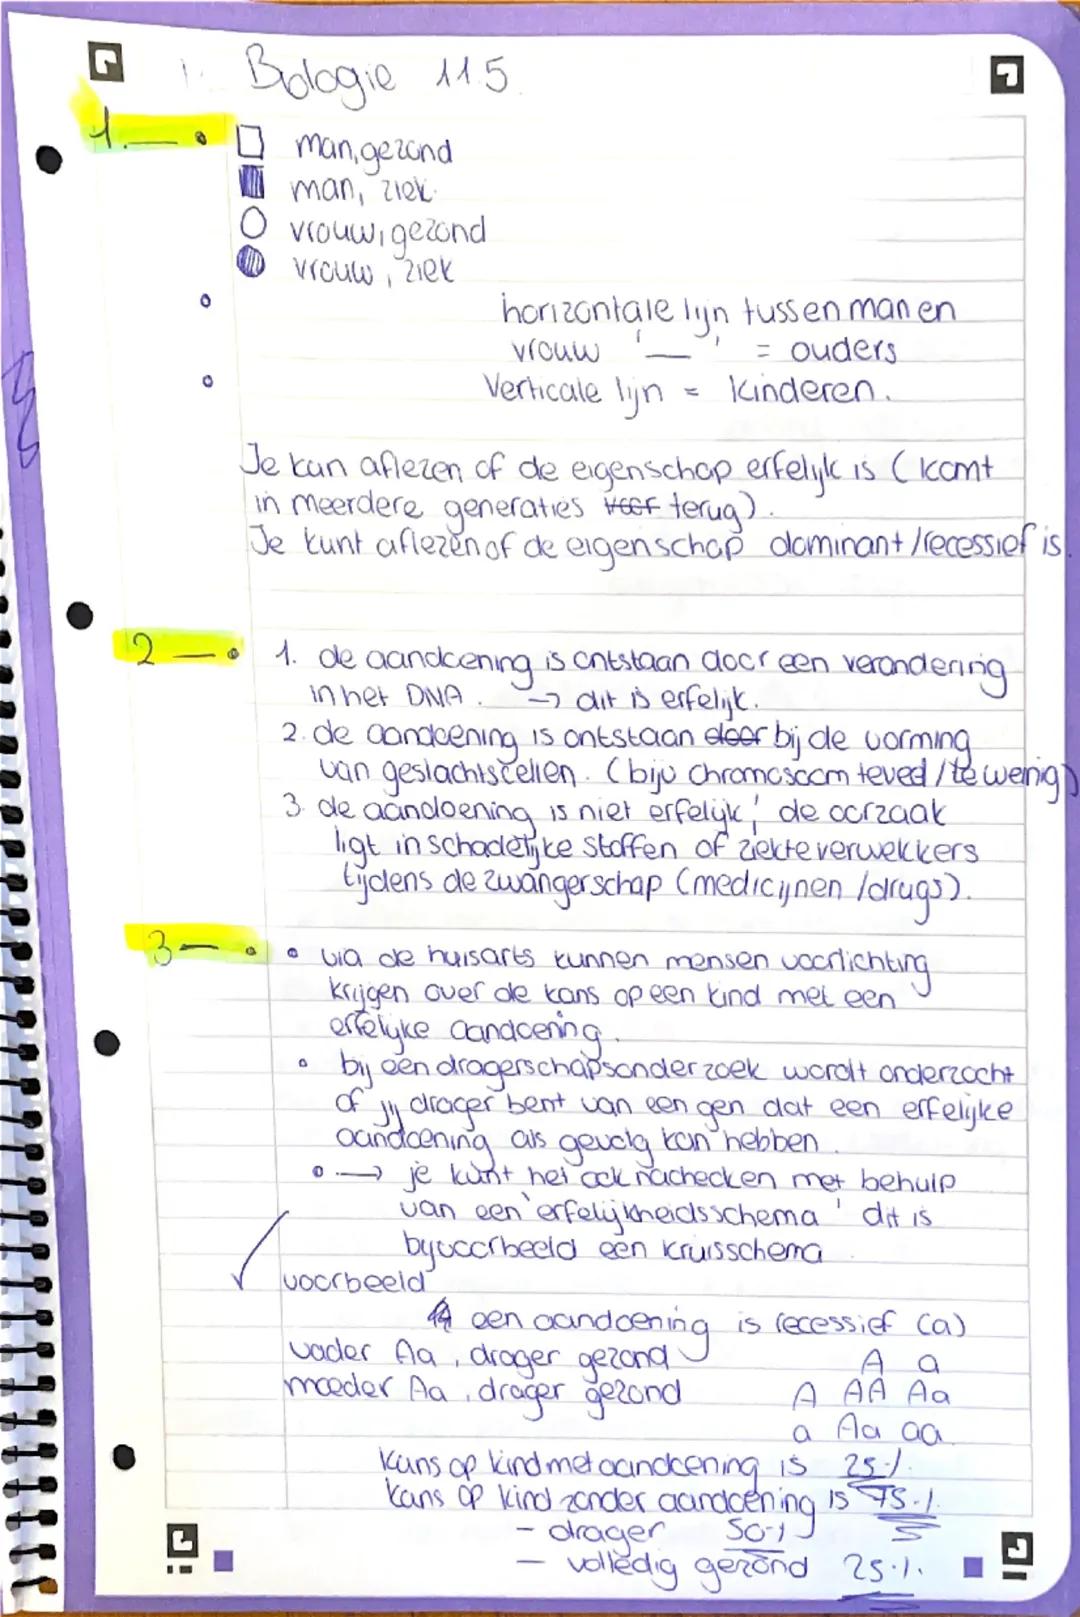 Biologie 11.5
1. — man, gezond
man, ziek
vrouw, gezond
vrouw, ziek
horizontale lijn tussen man en
vrouw '—' = ouders
Verticale lijn = kinderen.
Je kan aflezen of de eigenschap erfelijk is (komt
in meerdere generaties voor terug).
Je kunt aflezen of de eigenschap dominant/recessief is.
2 — 1. de aandoening is ontstaan door een verandering
in het DNA. → dit is erfelijk.
2. de aandoening is ontstaan door bij de vorming
van geslachtscellen. (bijv chromosoom teveel/te weinig)
3. de aandoening is niet erfelijk; de oorzaak
ligt in schadelijke stoffen of ziekteverwekkers
tijdens de zwangerschap (medicijnen/drugs).
3 — via de huisarts kunnen mensen voorlichting
krijgen over de kans op een kind met een
erfelijke aandoening.
bij een dragerschapsonderzoek wordt onderzocht
of jij drager bent van een gen dat een erfelijke
aandoening als gevolg kan hebben.
→ je kunt het ook nachecken met behulp
van een 'erfelijkheidsschema' dit is
bijvoorbeeld een kruisschema.
voorbeeld
een aandoening is recessief (a)
vader Aa, drager gezond A a
moeder Aa, drager gezond A AA Aa
a Aa aa
Kans op kind met aandoening is 25%.
Kans op kind zonder aandoening is 75%.
- drager 50%
- volledig gezond 25%.